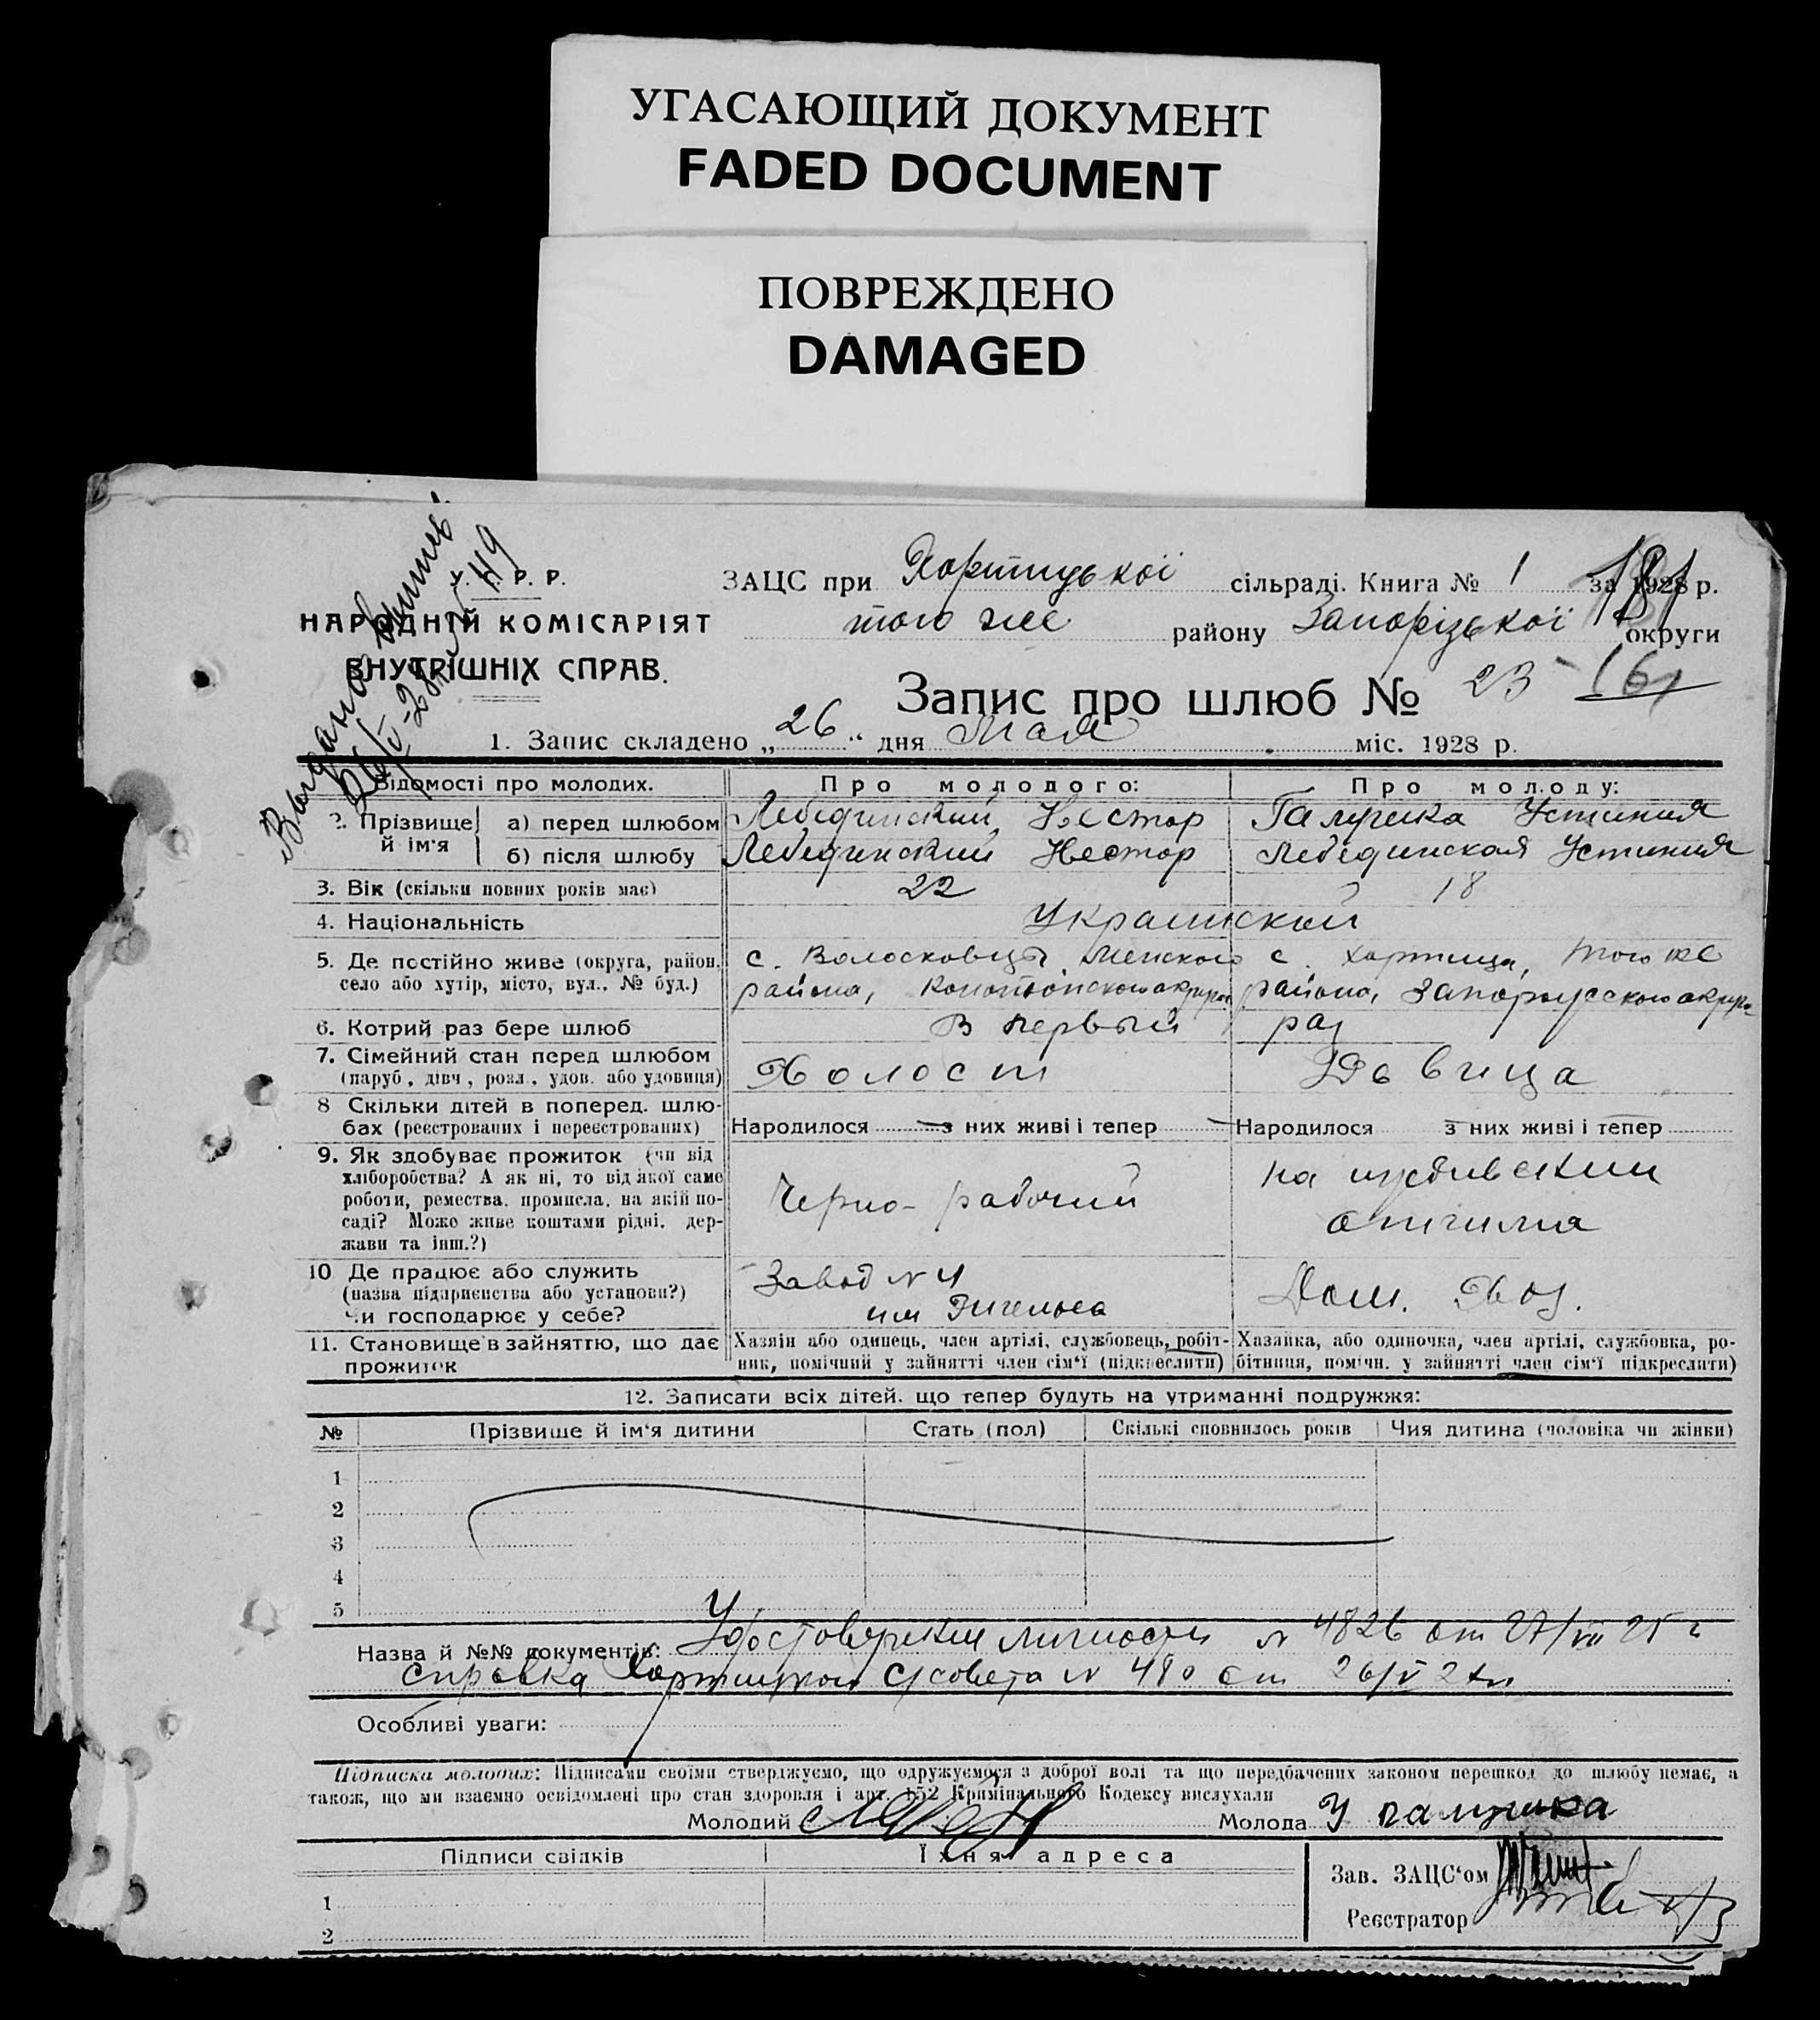 УГАСАЮЩИЙ ДОКУМЕНТ
FADED DOCUMENT
ПОВРЕЖДЕНО
DAMAGED
У. С. Р. Р.
НАРОДНІЙ КОМІСАРІЯТ
ВНУТРІШНІХ СПРАВ.
ЗАЦС при Хортицької сільраді. Книга № 1 за 1928 р.
181
того же району Запорізької округи
Запис про шлюб № 23 161
1. Запис складено „26“ дня Мая міс. 1928 р.
Відомості про молодих. Про молодого: Про молоду:
2. Прізвище й ім'я
а) перед шлюбом Лебединский Нестор Галушка Устиния
б) після шлюбу Лебединский Нестор Лебединская Устиния
3. Вік (скільки повних років має) 22 18
4. Національність Украинской
5. Де постійно живе (округа, район, с. Волосковцы Менского с. Хортица, того же
село або хутір, місто, вул., № буд.) района, Конотопского округа района, Запорожского округа
6. Котрий раз бере шлюб В первый раз
7. Сімейний стан перед шлюбом
(паруб., дівч., розл., удов. або удовиця) Холост Девица
8 Скільки дітей в поперед. шлю-
бах (реєстрованих і переєстрованих) Народилося — з них живі і тепер — Народилося з них живі і тепер
9. Як здобуває прожиток (чи від
хліборобства? А як ні, то від якої саме
роботи, ремества, промисла, на якій по-
саді? Може живе коштами рідні, дер-
жави та інш.?)
Черно-рабочий
на иждивении
отчима
10 Де працює або служить
(назва підприємства або установи?)
Чи господарює у себе?
Завод № 4
им Энгельса
Дом. Хоз.
11. Становище в зайняттю, що дає
прожиток
Хазяін або одинець, член артілі, службовець, робіт-
ник, помічний у зайнятті член сім'ї (підкреслити)
Хазяйка, або одиночка, член артілі, службовка, ро-
бітниця, помічн. у зайнятті член сім'ї підкреслити)
12. Записати всіх дітей, що тепер будуть на утриманні подружжя:
№ Прізвище й ім'я дитини Стать (пол) Скількі сповнилось років Чия дитина (чоловіка чи жінки)
1
2
3
4
5
Назва й №№ документів: Удостоверении личности № 4826 от 27/VII 25 г
справка Хортицкой с/совета № 480 от 26/V 28
Особливі уваги:
Підписка молодих: Підписами своїми стверджуємо, що одружуємося з доброї волі та що передбачених законом перешкод до шлюбу немає, а
також, що ми взаємно освідомлені про стан здоровля і арт. 152 Кримінального Кодексу вислухали
Молодий Молода У галушка
Підписи свідків Їхня адреса
1
2
Зав. ЗАЦС'ом
Реєстратор